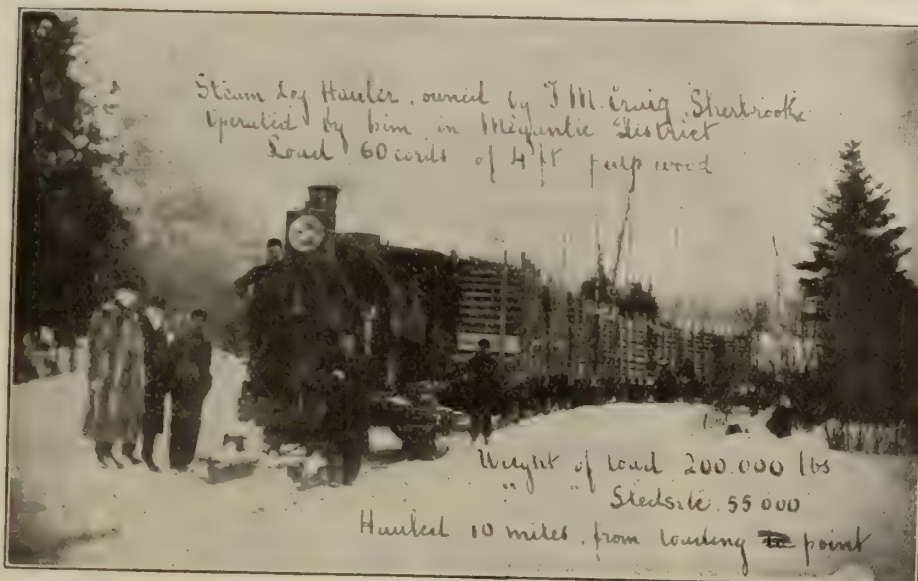 Steam Log Hauler, owned by F M. Craig Sherbrooke
Operated by him in Megantic District
Load 60 cords of 4 ft pulp wood
Weight of load 200.000 lbs
" " Sleds etc. 55 000
Hauled 10 miles, from loading point